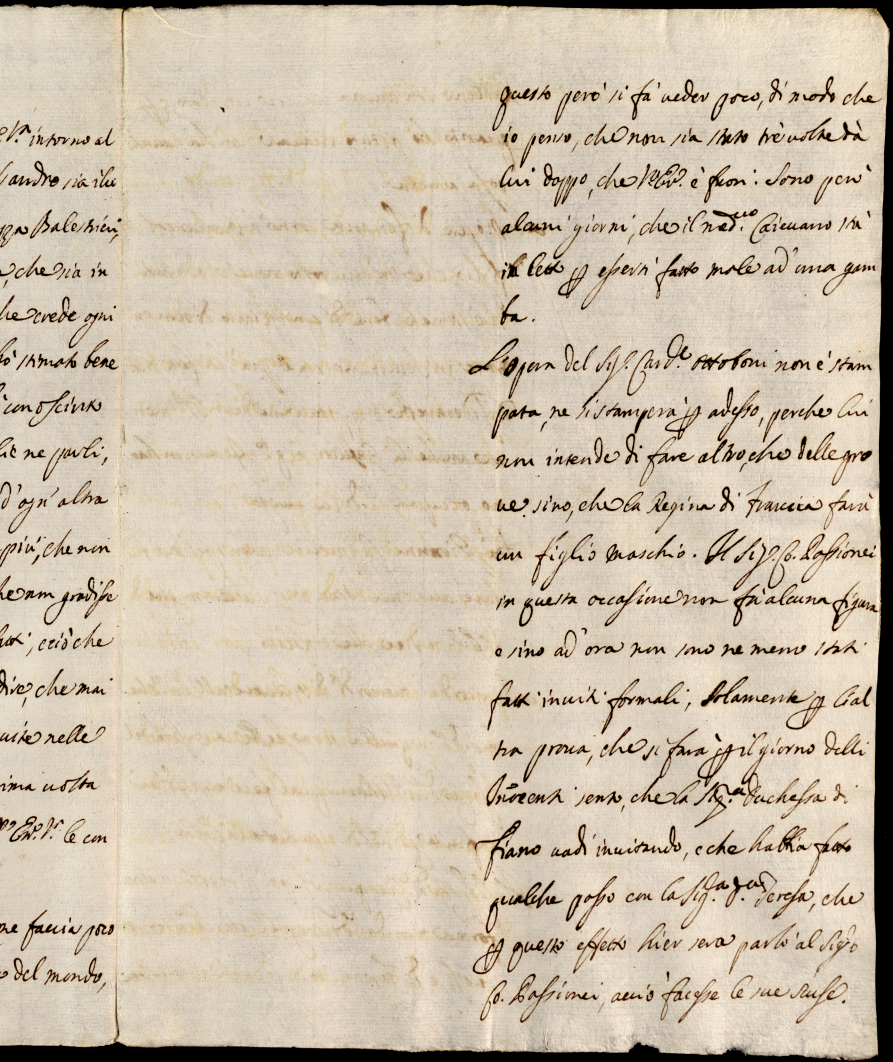 intorno al
sandro sia il
Balestrieri,
che sia in
he crede ogni
stimato bene
conosciuto
ne parli,
d'ogn'altra
più, che non
gradisse
ciò che
dire, che mai
nelle
ima uolta
le con
ne faccia poco
del mondo,
questo però si fà ueder poco, di modo che
io penso, che non sia stato trè uolte dà
lui doppo, che V. Em. è fuori. Sono però
alcuni giorni, che il med.mo stà
in letto p essersi fatto male ad'una gam
ba.
L'opera del Sig.r Card.le Ottoboni non è stam
pata, ne si stamperà p adesso, perche lui
non intende di fare altro, che delle pro
ue, sino, che la Regina di Francia farà
un figlio maschio. Il Sig.r Co. Passionei
in questa occasione non fà alcuna figura
e sino ad'ora non sono ne meno stati
fatti inuiti formali, solamente p l'al
tra proua, che si farà p il giorno delli
Innocenti sento, che la Sig.ra Duchessa di
Fiano uadi inuitando, e che habbia fatto
qualche passo con la Sig.ra D.a Teresa, che
p questo effetto hier sera parlò al Sig.r
Co. Passionei, acciò facesse le sue scuse.